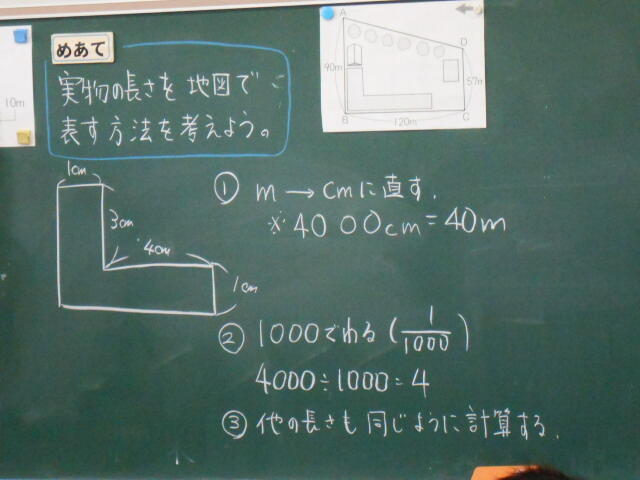 めあて
実物の長さを地図で
表す方法を考えよう。
10m
A
D
90m
57m
B
120m
C
1cm
3cm
4cm
1cm
① m→cmに直す.
※4000cm=40m
② 1000でわる(1/1000)
4000÷1000=4
③ 他の長さも同じように計算する.